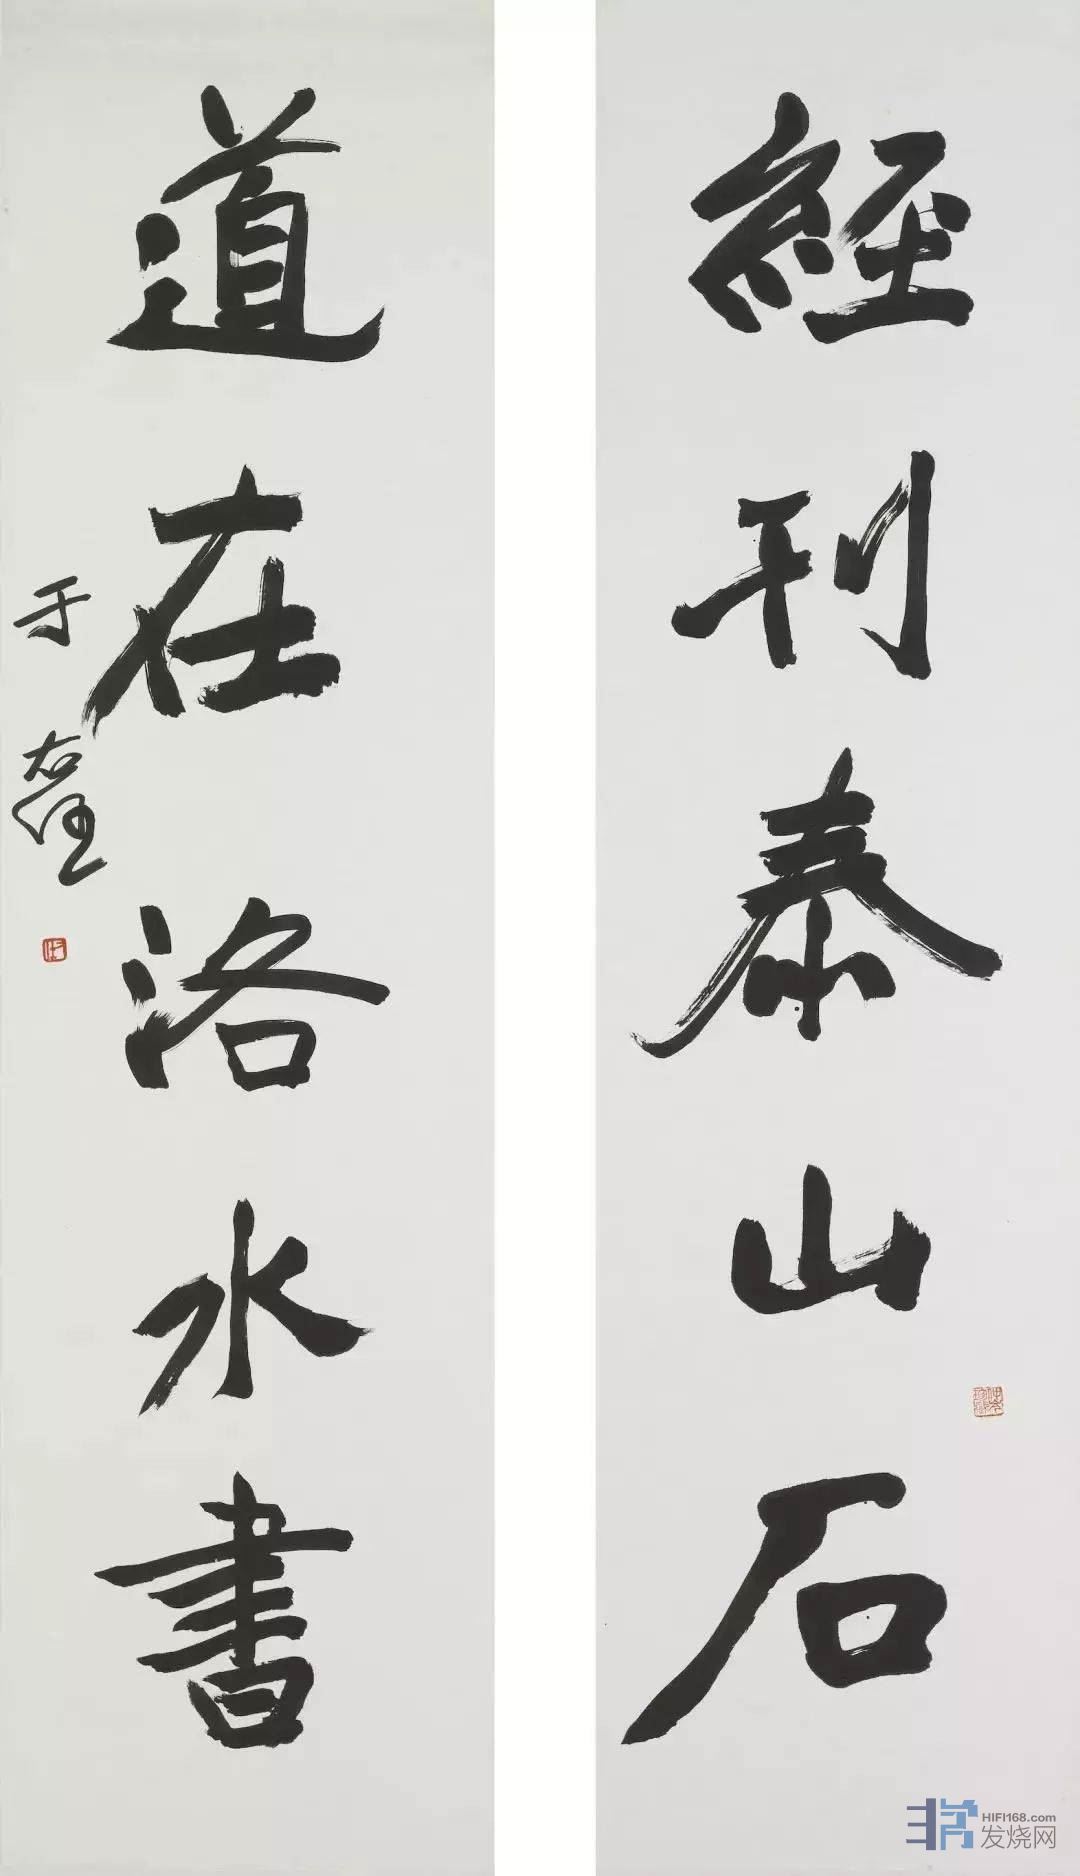 經刊泰山石
道在洛水書
于右任
HIFI168.com
发烧网